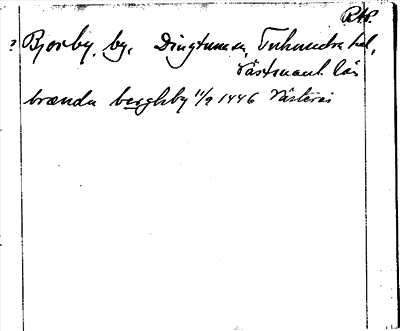 RAP.
? Bjorby, by, Dingtuna sn, Tuhundra hd,
Västmanl. län
brænda berghby 11/9 1446 Västerås